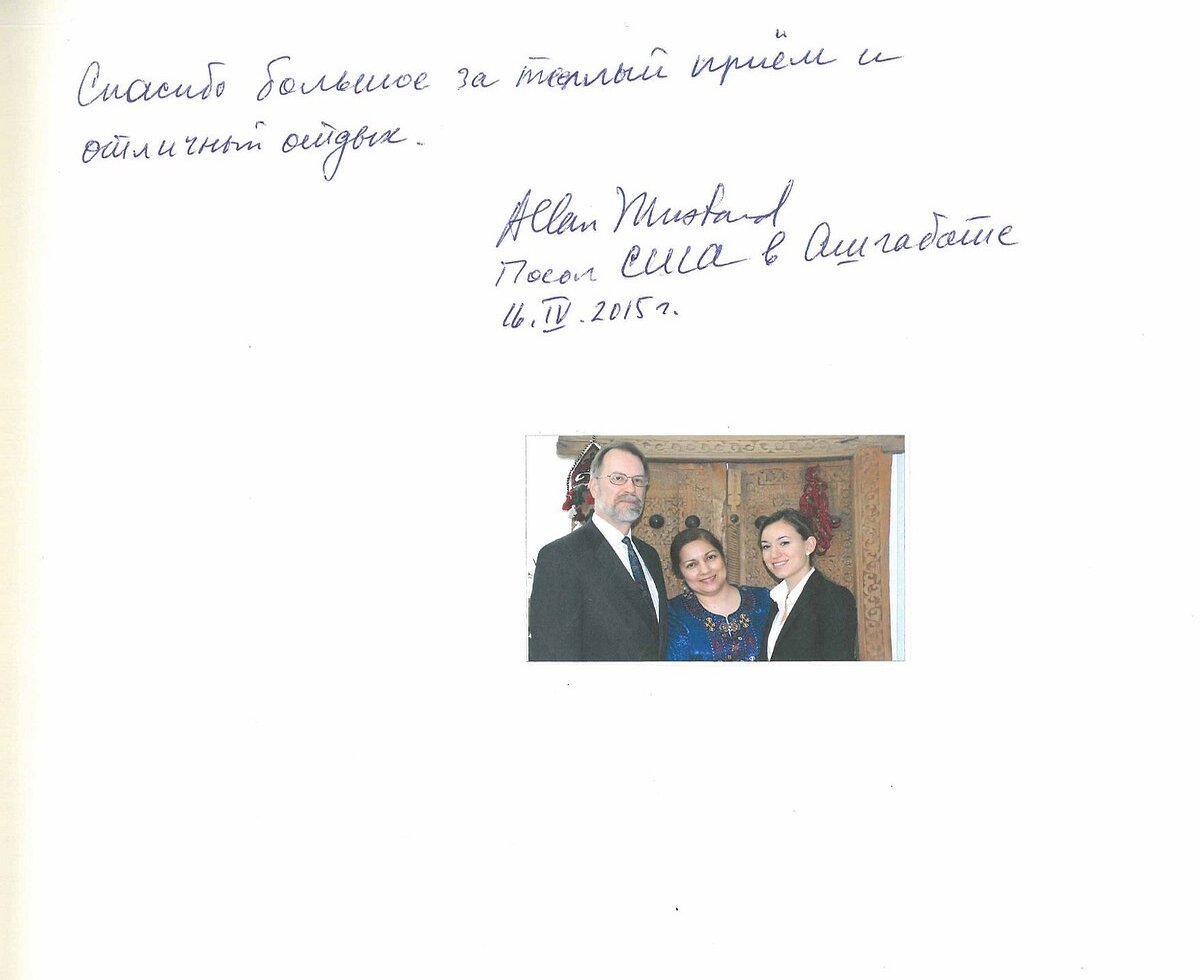 Спасибо большое за теплый приём и
отличный отдых.
Allan Mustard
Посол США в Ашгабате
16.IV.2015г.